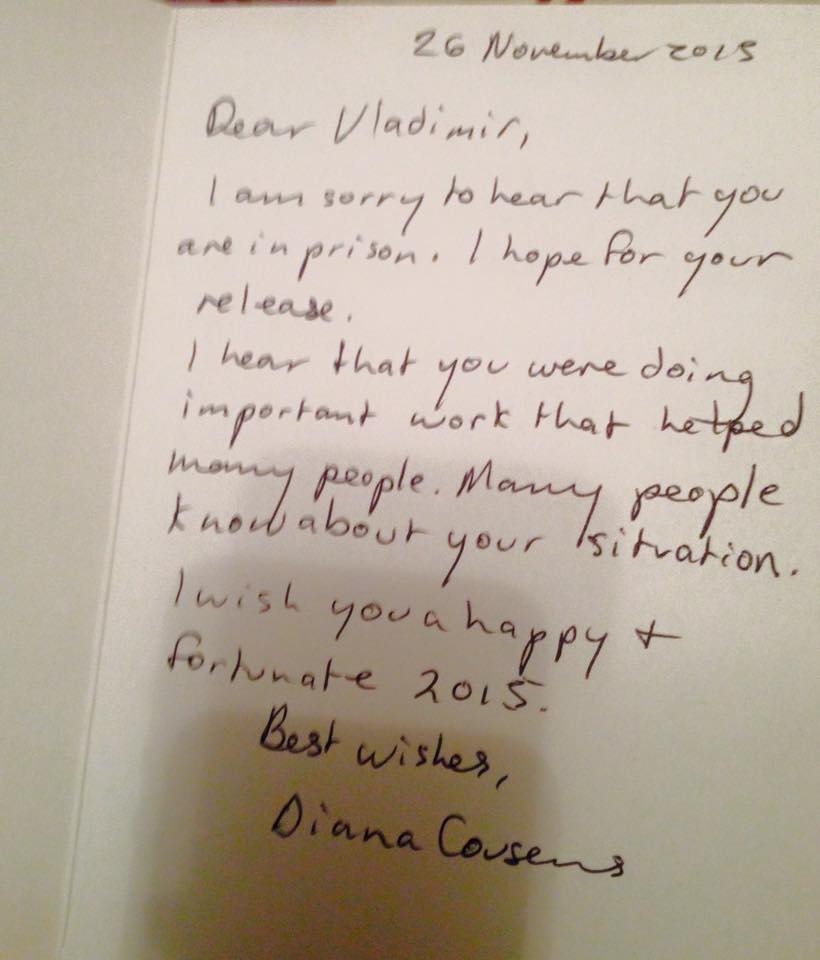 26 November 2015
Dear Vladimir,
I am sorry to hear that you
are in prison. I hope for your
release.
I hear that you were doing
important work that helped
many people. Many people
know about your situation.
I wish you a happy +
fortunate 2015.
Best wishes,
Diana Cousens